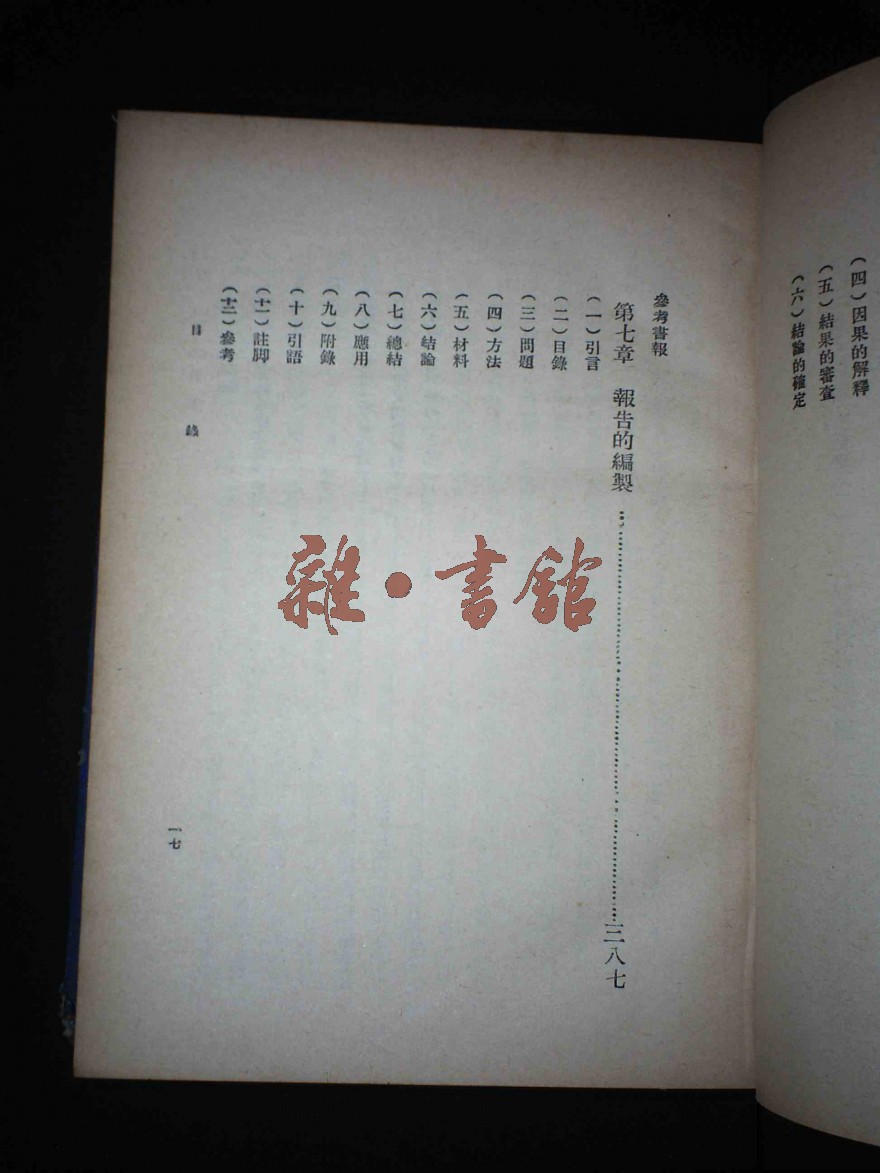 (四)因果的解釋
(五)結果的審查
(六)結論的確定
參考書報
第七章 報告的編製……三八七
(一)引言
(二)目錄
(三)問題
(四)方法
(五)材料
(六)結論
(七)總結
(八)應用
(九)附錄
(十)引語
(十一)註脚
(十二)參考
目錄
一七
雜·書館